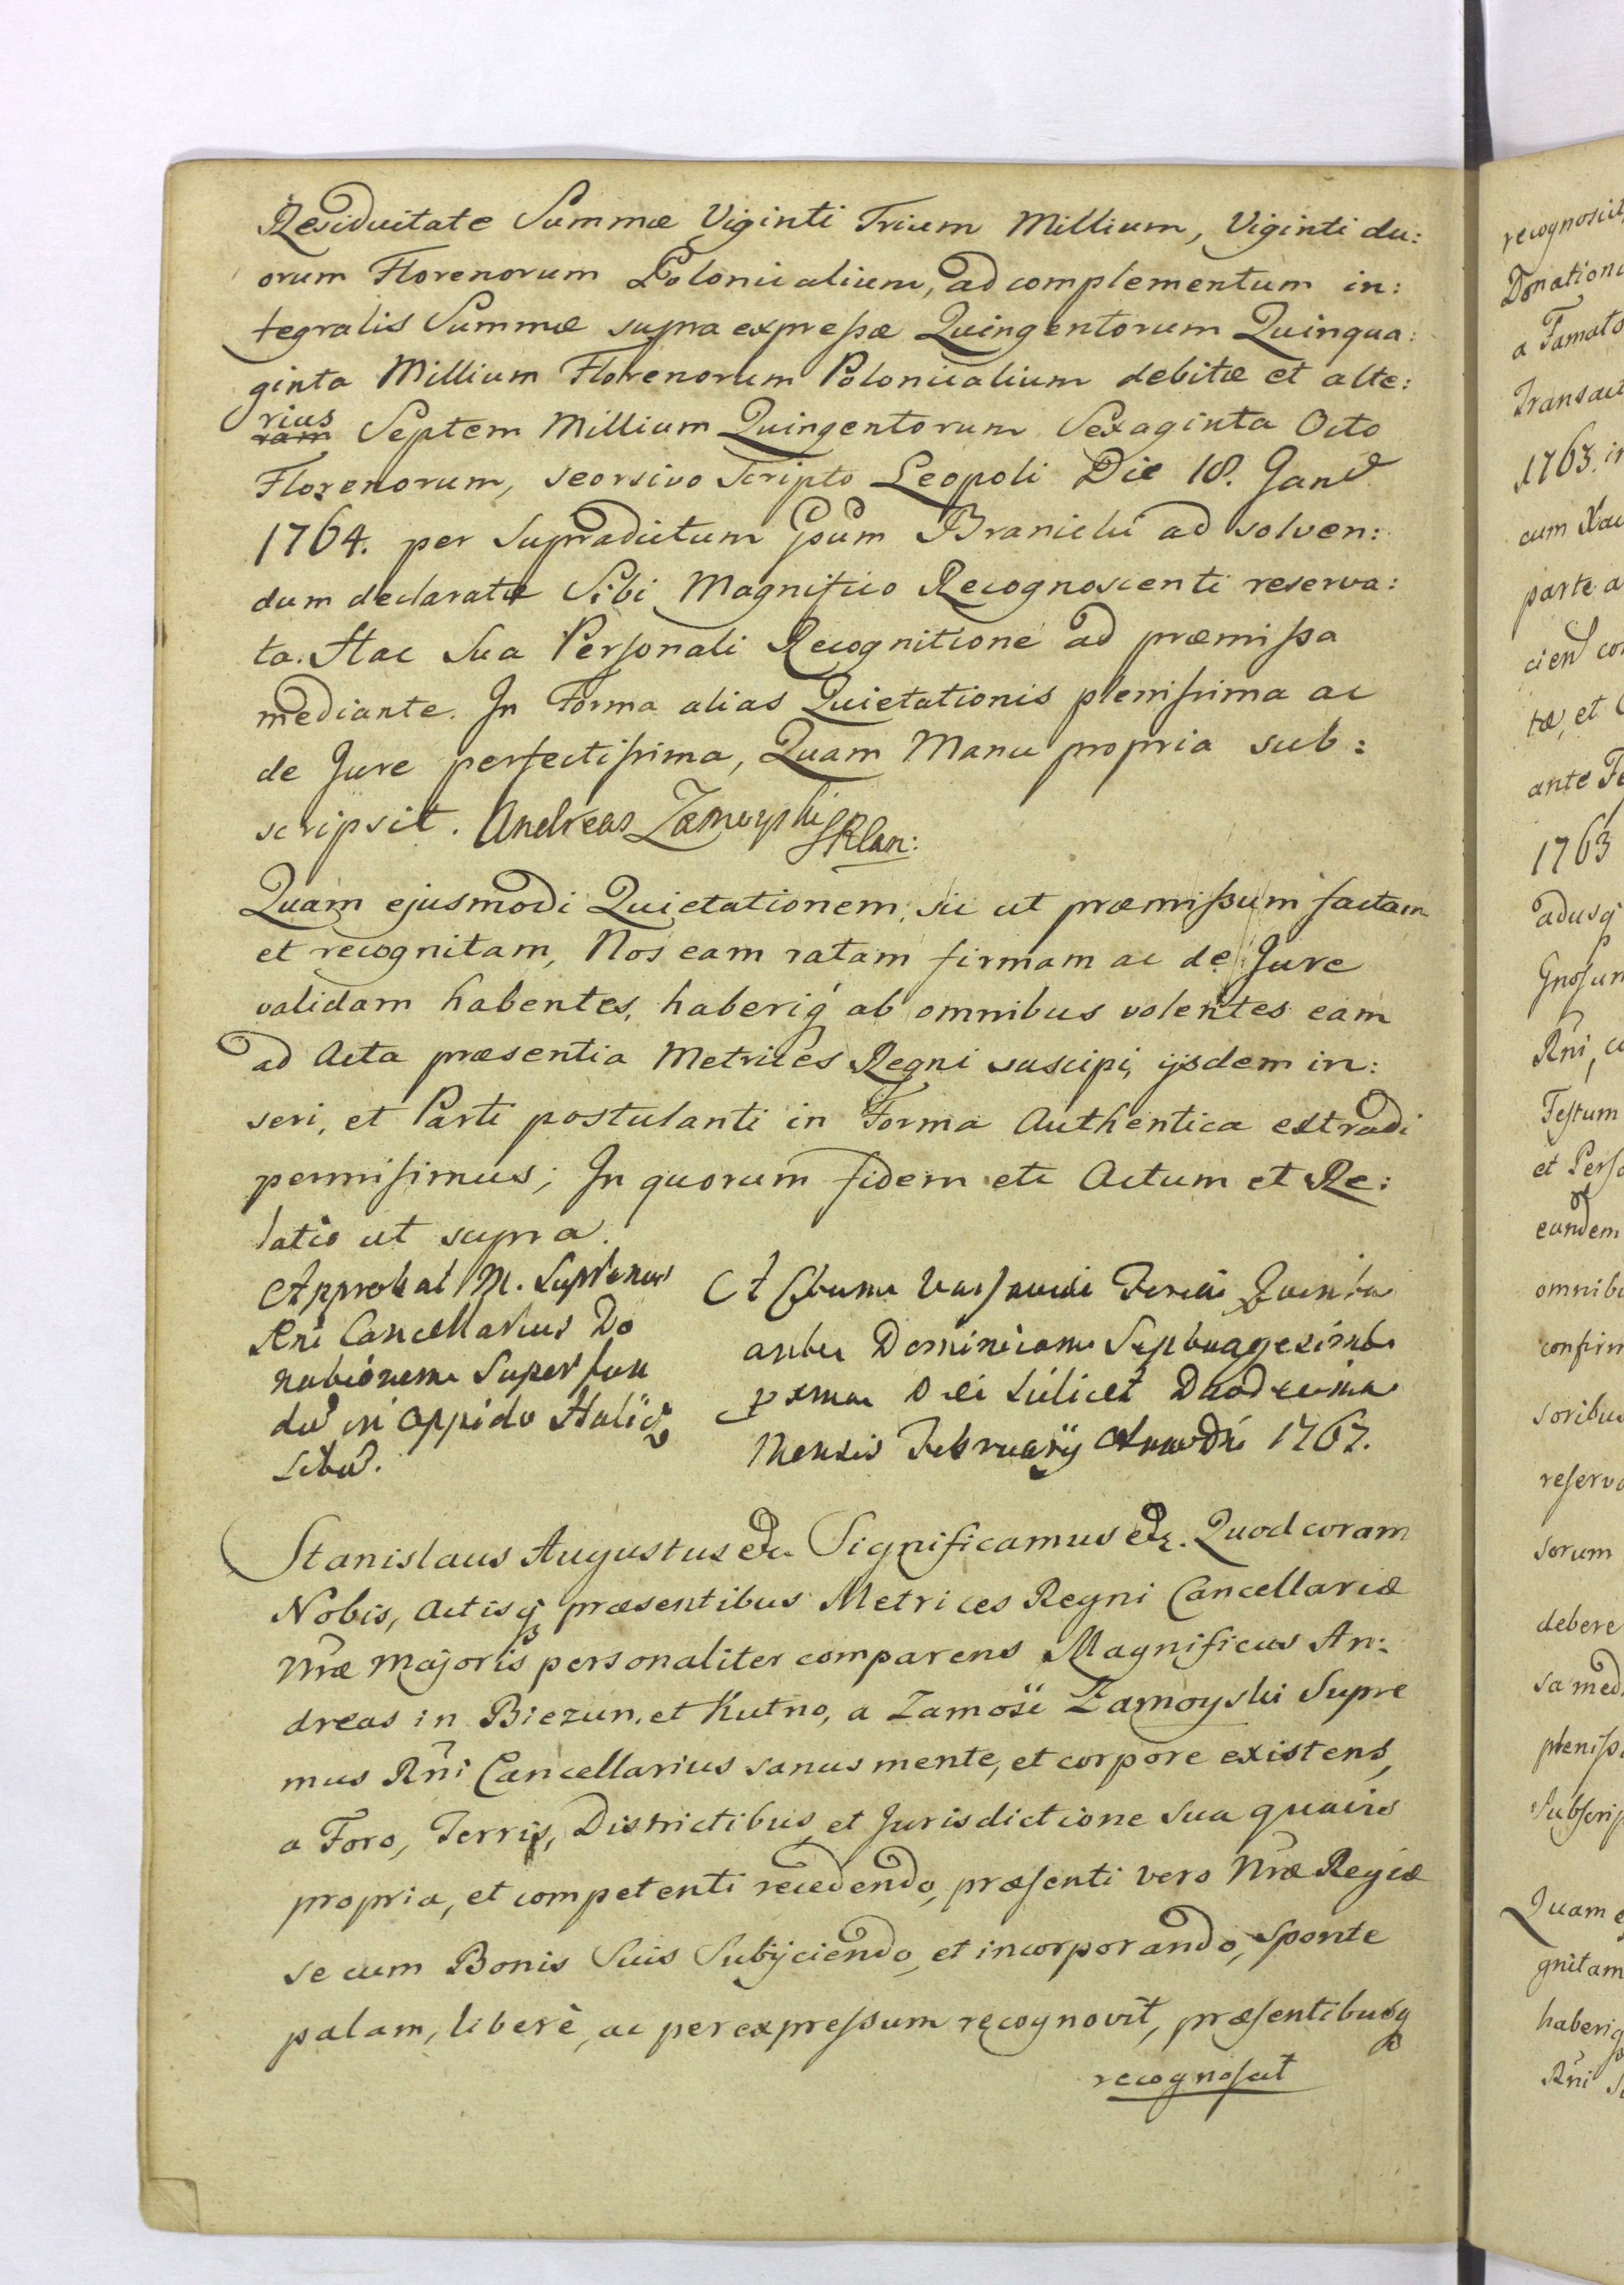 Residuitate Summæ Viginti Trium Millium, Viginti du:
orum Florenorum Polonicalium, ad complementum in:
tegralis Summæ supra expressæ Quingentorum Quinqua:
ginta Millium Florenorum Polonicalium debitæ et alte:
rius
ram Septem Millium Quingentorum Sexaginta Octo
Florenorum, seorsivo Scripto Leopoli Die 18. Jan
1764. per Supradictum Gsum Branicki ad solven:
dum declaratæ Sibi Magnifico Recognoscenti reserva:
ta. Hac Sua Personali Recognitione ad præmissa
mediante. In Forma alias Quietationis plenissima ac
de Jure perfectissima, Quam Manu propria sub:
scripsit. Andreas Zamoyski
SRlan:
Quam ejusmodi Quietationem, sic ut præmissum factam
et recognitam, Nos eam ratam firmam ac de Jure
validam habentes, haberiq ab omnibus volentes eam
ad Acta præsentia Metrices Regni suscipi, ijsdem in:
seri, et Parti postulanti in Forma Authentica extradi
permisimus; In quorum fidem etc Actum et Re:
latio ut supra.
Approbat M. Supremus
Rni Cancellarius Do
nationem Super fun
du in Oppido Halicz
situ.
Actum Varsaviæ Feria Quinta
ante Dominicam Septuagesimæ
pxma Die scilicet Duodecima
Mensis Februarij Anno Dni 1767.
Stanislaus Augustus etc. Significamus etc. Quod coram
Nobis, Actisq præsentibus Metrices Regni Cancellariæ
Nræ Majoris personaliter comparens Magnificus An:
dreas in Biezun, et Kutno, a Zamość Zamoyski Supre
mus Rni Cancellarius sanus mente, et corpore existens,
a Foro, Terris, Districtibus, et Jurisdictione Sua quavis
propria, et competenti recedendo, præsenti vero Nræ Regiæ
se cum Bonis Suis Subijciendo, et incorporando, Sponte
palam, liberè, ac per expressum recognovit, præsentibusq
recognoscit
recognoscit
Donation
a Famato
Transact
1763. in
cum
parte a
cien
tæ, et
ante
1763
adusq
Gnosum
Rni,
Festum
et Perso
eundem
omnibu
confirm
soribus
reserv
sorum
debere
sa med
pleniss
Subscrip
Quam e
gnitam
haberiq
Rni